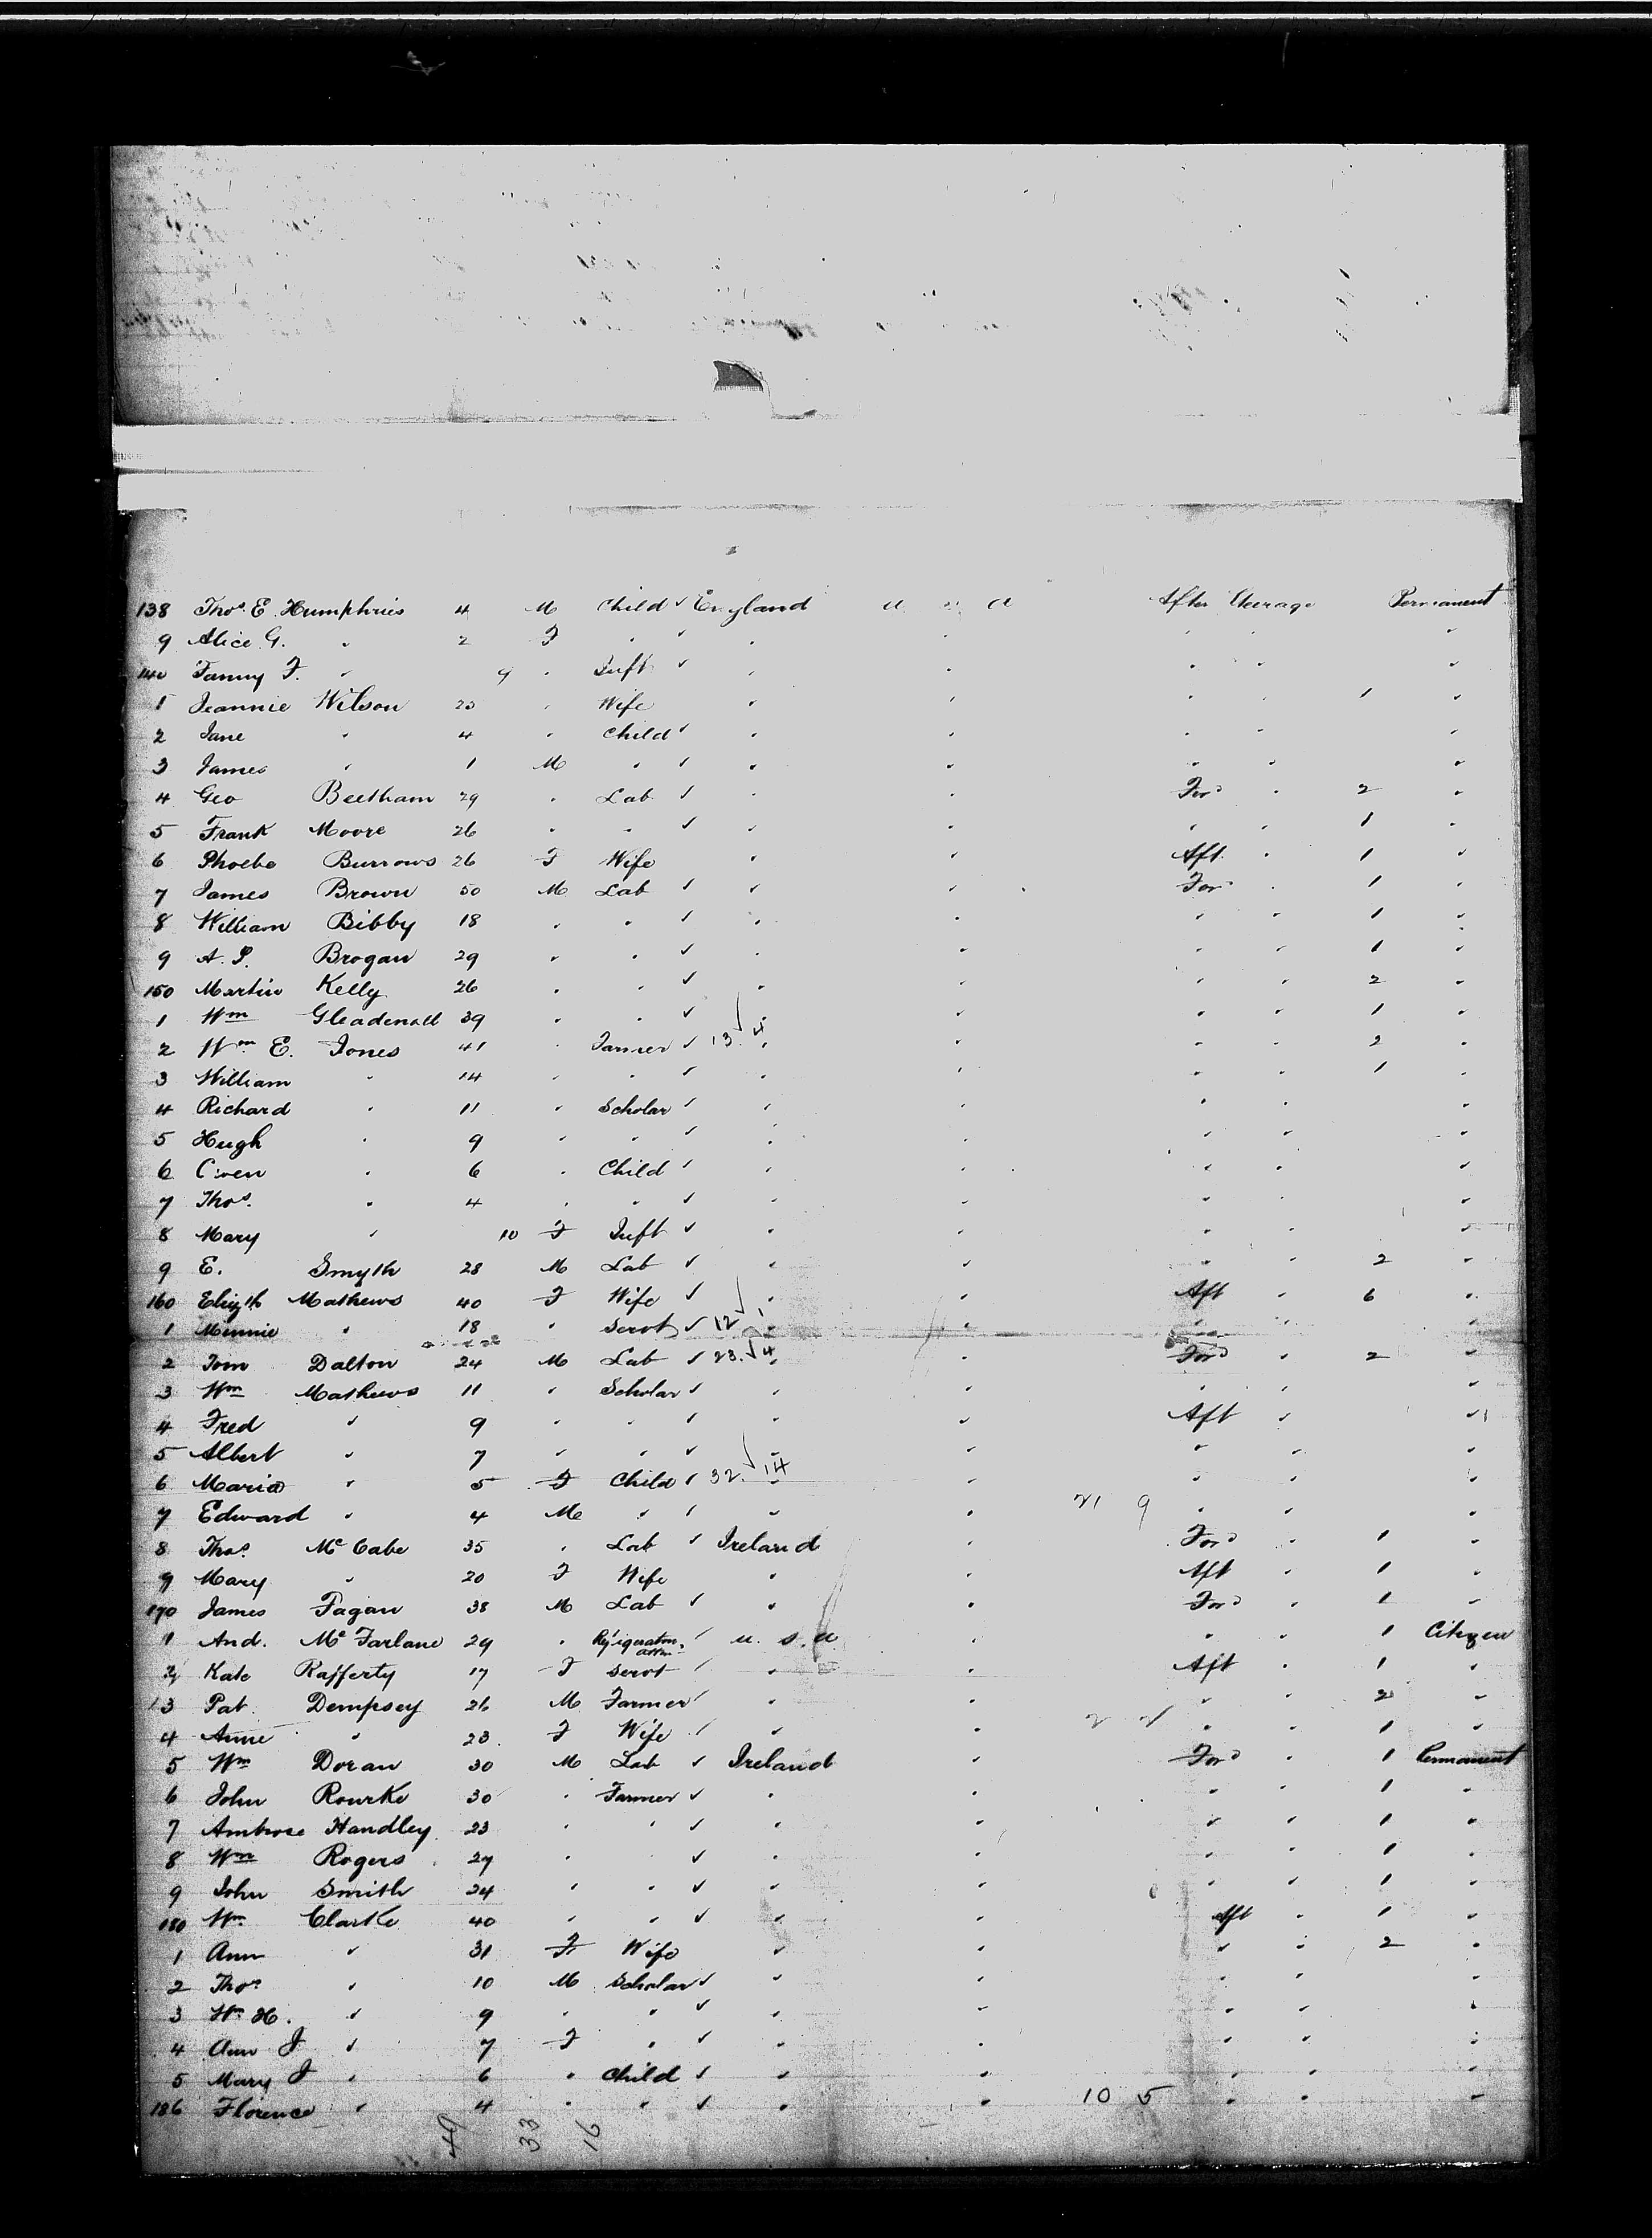 138 Thos. E. Humphries 4 M Child ✓ England U S A After Steerage Permanent
9 Alice G. " 2 F " ✓ " " " " "
140 Fanny F. " 9 " Inft ✓ " " " " "
1 Jeannie Wilson 23 " Wife " " " " 1 "
2 Jane " 4 " Child ✓ " " " " "
3 James " 1 M " ✓ " " " " "
4 Geo Beetham 29 " Lab ✓ " " For'd " 2 "
5 Frank Moore 26 " " ✓ " " " " 1 "
6 Phoebe Burrows 26 F Wife " " Aft. " 1 "
7 James Brown 50 M Lab ✓ " " For'd " 1 "
8 William Bibby 18 " " ✓ " " " " 1 "
9 A. P. Brogan 29 " " ✓ " " " " 1 "
150 Martin Kelly 26 " " ✓ " " " " 2 "
1 Wm 39 " " ✓ " " " " 1 "
2 Wm E. Jones 41 " Farmer ✓ 13 ✓ 4 " " " " 2 "
3 William " 14 " " ✓ " " " " 1 "
4 Richard " 11 " Scholar ✓ " " " " "
5 Hugh " 9 " " ✓ " " " " "
6 Owen " 6 " Child ✓ " " " " "
7 Thos. " 4 " " ✓ " " " " "
8 Mary " 10 F Inft ✓ " " " " "
9 E. Smyth 28 M Lab ✓ " " " " 2 "
160 Elizth Mathews 40 F Wife ✓ " " Aft " 6 "
1 Minnie " 18 " Servt ✓ 12 ✓ 1 " " " " "
2 Tom Dalton 24 M Lab ✓ 23. ✓ 4 " " For'd " 2 "
3 Wm Mathews 11 " Scholar ✓ " " " " "
4 Fred " 9 " " ✓ " " Aft " "
5 Albert " 7 " " ✓ " " " " "
6 Maria " 5 F Child ✓ 32. ✓ 14 " " " " "
7 Edward " 4 M " ✓ " " 21 9 " " "
8 Thos. McCabe 35 " Lab ✓ Ireland " For'd " 1 "
9 Mary " 20 F Wife " " Aft " 1 "
170 James Fagan 38 M Lab ✓ " " For'd " 1 "
1 And. McFarlane 29 " ✓ U. S. A " " " 1 Citizen
2 Kate Rafferty 17 F Servt ✓ " " Aft " 1 "
3 Pat. Dempsey 26 M Farmer ✓ " " " " 2 "
4 Anne " 23 F Wife ✓ " " 2 2 " " 1 "
5 Wm Doran 30 M Lab ✓ Ireland " For'd " 1 Permanent
6 John Rourke 30 " Farmer ✓ " " " " 1 "
7 Ambrose Handley 23 " " ✓ " " " " 1 "
8 Wm Rogers 27 " " ✓ " " " " 1 "
9 John Smith 24 " " ✓ " " " " 1 "
180 Wm. Clarke 40 " " ✓ " " Aft " 1 "
1 Ann " 31 F Wife " " " " 2 "
2 Thos. " 10 M Scholar ✓ " " " " "
3 Wm H. " 9 " " ✓ " " " " "
4 Ann J " 7 F " ✓ " " " " "
5 Mary J " 6 " Child ✓ " " " " "
186 Florence " 4 " " ✓ " " 10 5 " " "
49 33 16